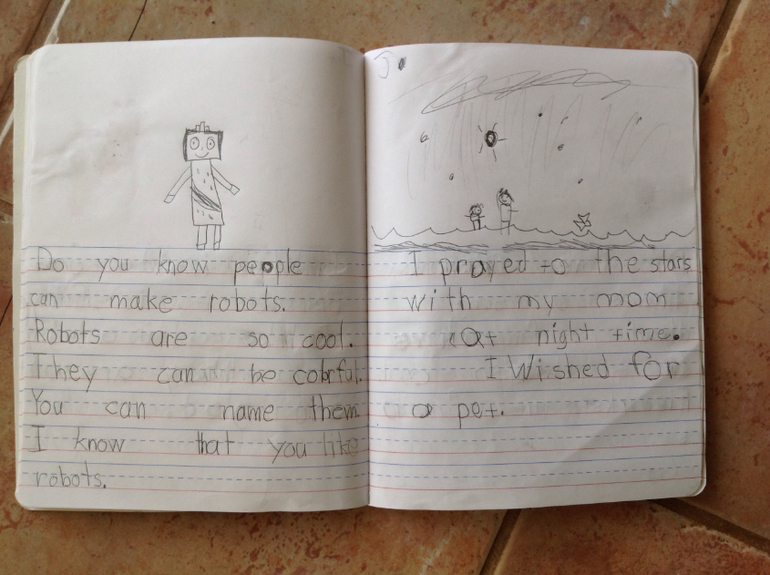 Do you know people
can make robots.
Robots are so cool.
They can be colorful.
You can name them
I know that you like
robots.
I prayed to the stars
with my mom
at night time.
I Wished for
a pet.